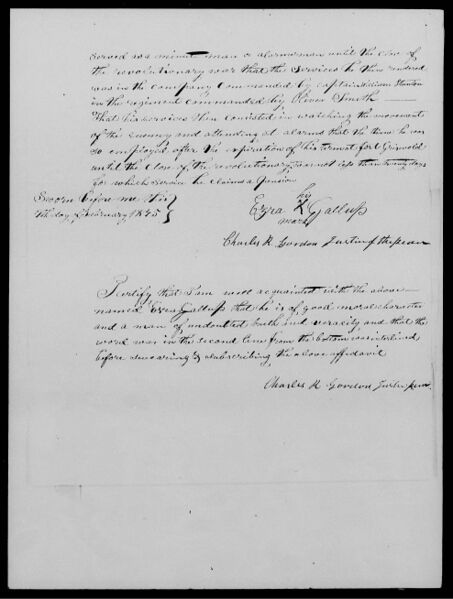 served as a minute man or alarm man until the close of
the revolutionary war that the Services he then rendered
was in the company Commanded by captain William Stanton
in the regiment commanded by Oliver Smith
That his services then consisted in watching the movements
of the enemy and attending at alarms that the time he was
so employed after the expiration of his term at fort Griswold
until the close of the revolutionary war not less than twenty days
for which service he claims a pension
Sworn before me this
day February 1845
his
Ezra X Gallup
mark
Charles H. Gordon Justice of the peace
I certify that I am well acquainted with the above
named Ezra Gallup that he is of good moral character
and a man of undoubted truth and veracity and that the
word was in the second line from the bottom was interlined
before swearing & subscribing the above affidavit
Charles H Gordon Justice peace